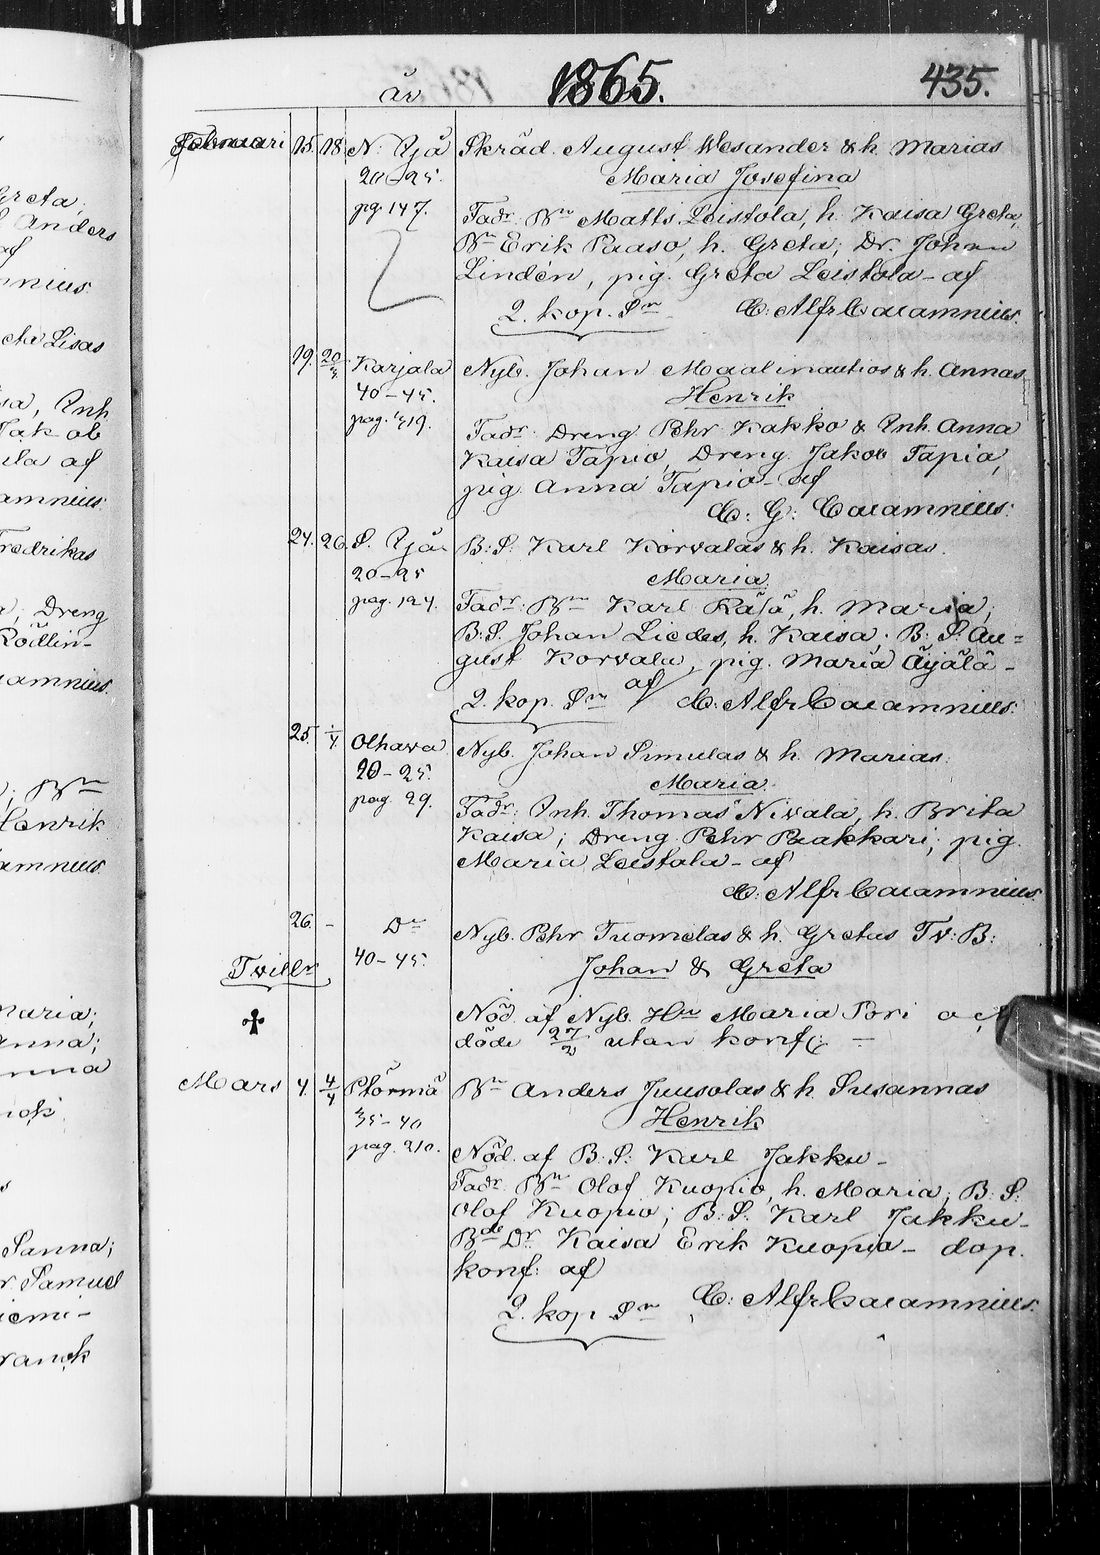 år 1865. 435.
Februari 15. 18. N. Ijå Skräd. August Wesander & h. Marias
20-25. Maria Josefina
pg. 147. Fadr. Bn Matts Leistola, h. Kaisa Greta,
Bn Erik Paaso, h. Greta; Dr. Johan
Lindén, pig. Greta Leistola - af
2. kop. Sn C. Alfr Calamnius.
19. 20/3 Karjala Nyb. Johan Maalinauttios & h. Annas
40-45. Henrik
pag. 419. Fadr. Dreng Pehr Kakko & Inh. Anna
Kaisa Tapio, Dreng Jakob Tapio,
pig Anna Tapio - af
C. G. Calamnius.
24. 26. S. Ijå B.S. Karl Korvalas & h. Kaisas.
20-25 Maria.
pag. 124. Fadr. Bn Karl Räsä, h. Maria;
B.S. Johan Liedes, h. Kaisa. B.S. Au=
gust Korvala, pig. Maria Äijälä -
2. kop. Sn af C. Alfr Calamnius.
25. 1/4. Olhava Nyb. Johan Simulas & h. Marias.
20-25. Maria.
pag. 29. Fadr. Inh. Thomas Nivala, h. Brita
Kaisa; Dreng Pehr Paakkari; pig.
Maria Leistola - af
C. Alfr Calamnius.
26. - Do Nyb. Pehr Tuomelas & h. Gretas Tv. B:
40-45. Johan & Greta
Tvillr
Nöd. af Nyb. Hu Maria Pori
✝ döde 27/2 utan konf. -
Mars 4. 4/4 Ptörmä Bn Anders Juusolas & h. Susannas
35-40 Henrik
pag. 210. Nöd. af B.S. Karl Jakku -
Fadr. Bn Olof Kuopio, h. Maria; B.S.
Olof Kuopio; B.S. Karl Jakku -
Bde Dr. Kaisa Erik Kuopio - dop.
konf. af
2. kop Sn C. Alfr Calamnius.
Greta;
Anders
af
Lisas
Jakob
af
Fredrikas
Dreng
Bn
Henrik
Maria;
Anna;
Sanna;
Samuel